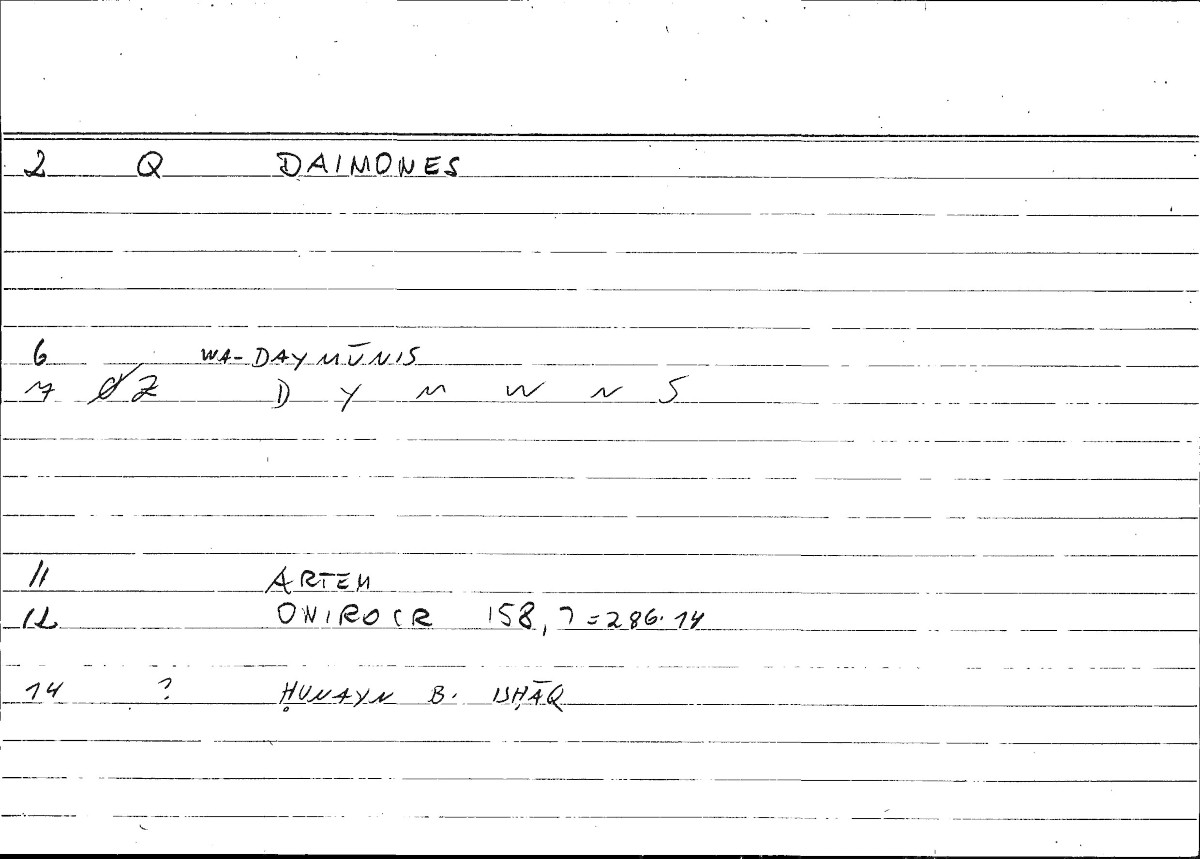 2 Q DAIMONES
6 WA-DAYMŪNIS
7 Z D Y M W N S
11 ARTEM
12 ONIROCR 158,7=286.14
14 ? ḤUNAYN B. ISḤĀQ